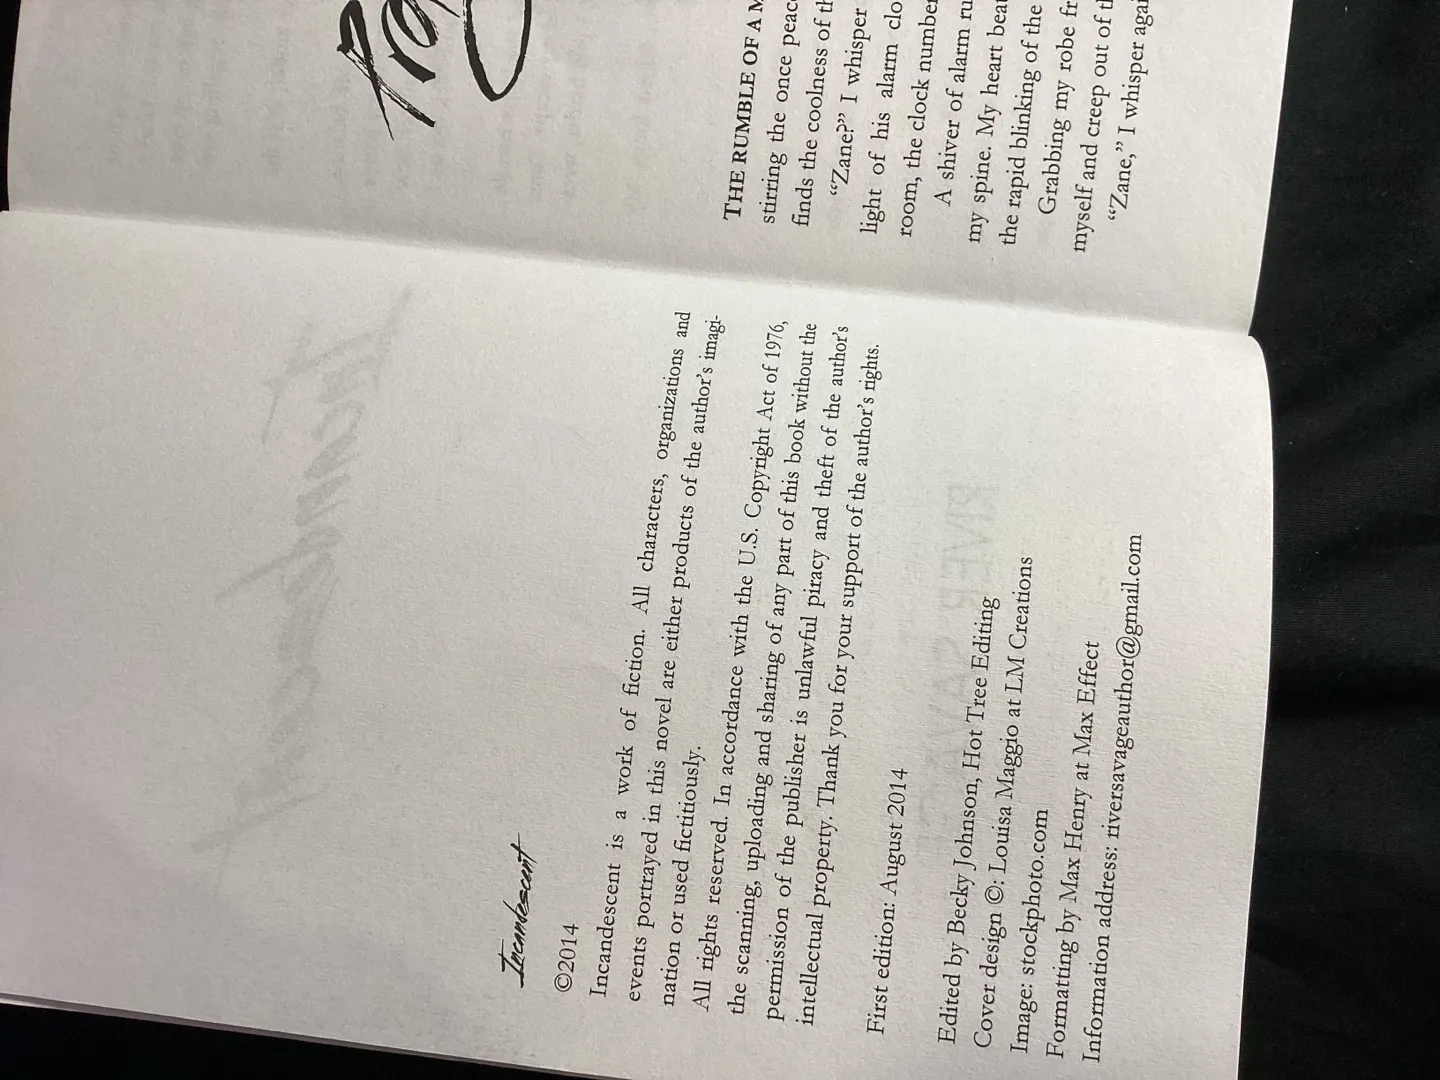 Incandescent
©2014
Incandescent is a work of fiction. All characters, organizations and
events portrayed in this novel are either products of the author's imagi-
nation or used fictitiously.
All rights reserved. In accordance with the U.S. Copyright Act of 1976,
the scanning, uploading and sharing of any part of this book without the
permission of the publisher is unlawful piracy and theft of the author's
intellectual property. Thank you for your support of the author's rights.
First edition: August 2014
Edited by Becky Johnson, Hot Tree Editing
Cover design ©: Louisa Maggio at LM Creations
Image: stockphoto.com
Formatting by Max Henry at Max Effect
Information address: riversavageauthor@gmail.com
THE RUMBLE OF A
stirring the once
finds the coolness of
“Zane?” I whisper
light of his alarm
room, the clock
A shiver of alarm
my spine. My heart
the rapid blinking of the
Grabbing my robe
myself and creep out of
“Zane,” I whisper